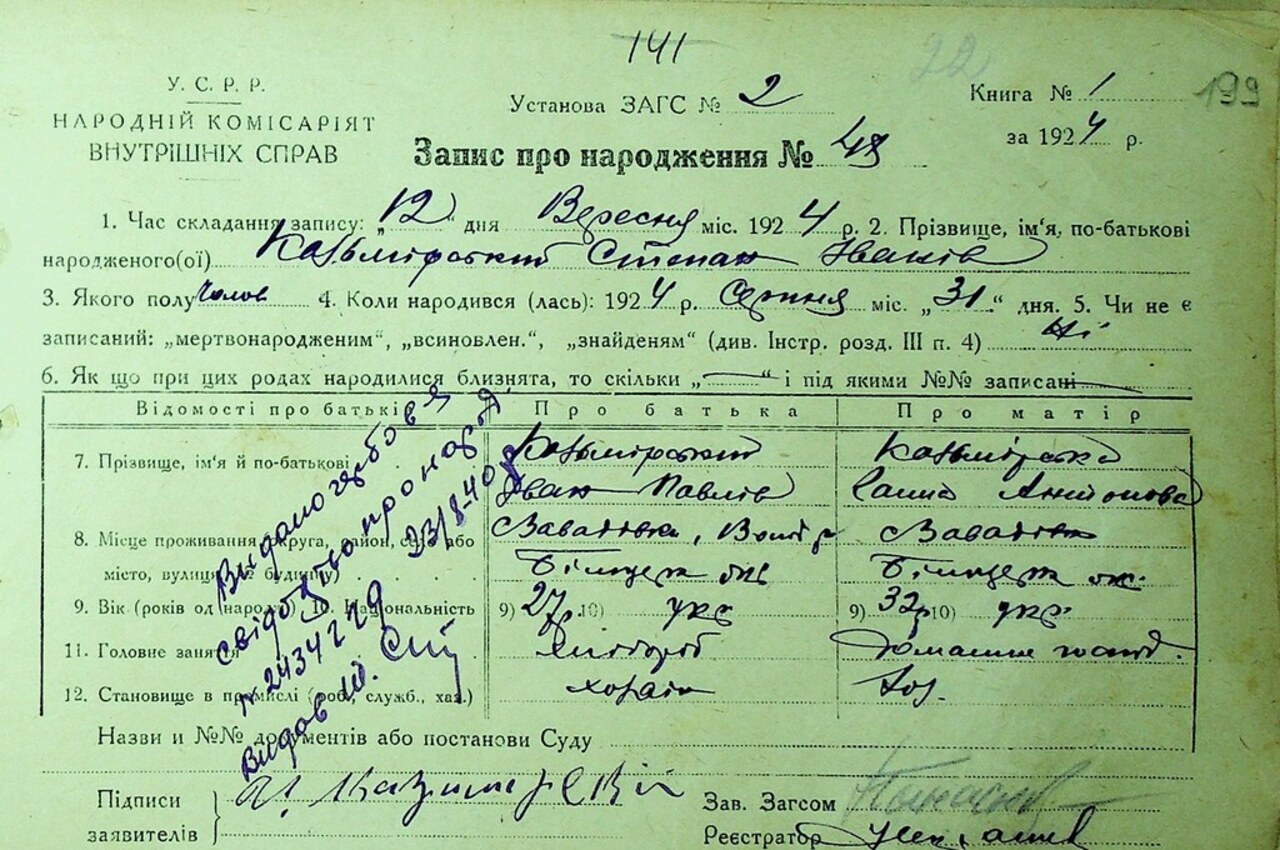 141
22
199
У. С. Р. Р.
НАРОДНІЙ КОМІСАРІЯТ
ВНУТРІШНІХ СПРАВ
Установа ЗАГС № 2
Книга № 1
за 1924 р.
Запис про народження № 48
1. Час складання запису: „12“ дня Вересня міс. 1924 р. 2. Прізвище, ім‘я, по-батькові
народженого(ої) Казьмірський Степан Іванів
3. Якого полу Чолов 4. Коли народився (лась): 1924 р. Серпня міс. „31“ дня. 5. Чи не є
записаний: „мертвонародженим“, „всиновлен.“, „знайденям“ (див. Інстр. розд. III п. 4) Ні
6. Як що при цих родах народилися близнята, то скільки „—“ і під якими №№ записані —
Відомості про батьків
Про батька
Про матір
7. Прізвище, ім‘я й по-батькові
Казьмірський
Іван Павлів
Казьмірська
Антонова
8. Місце проживання (округа, район, село або
місто, вулиця, № будинку)
Завадівка,
Завадівка
9. Вік (років од народж.) 10. Національність
9) 27р. 10) укр
9) 32р. 10) укр.
11. Головне заняття
Хлібороб
Домашнє госпд.
12. Становище в промислі (роб., служб., хаз.)
хазяїн
Назви и №№ документів або постанови Суду
Видано гербове
свідоцтво про народ.
№ 2434229 23/8-40р
видав
Підписи
заявителів
Казимірскій
Зав. Загсом
Реєстратор